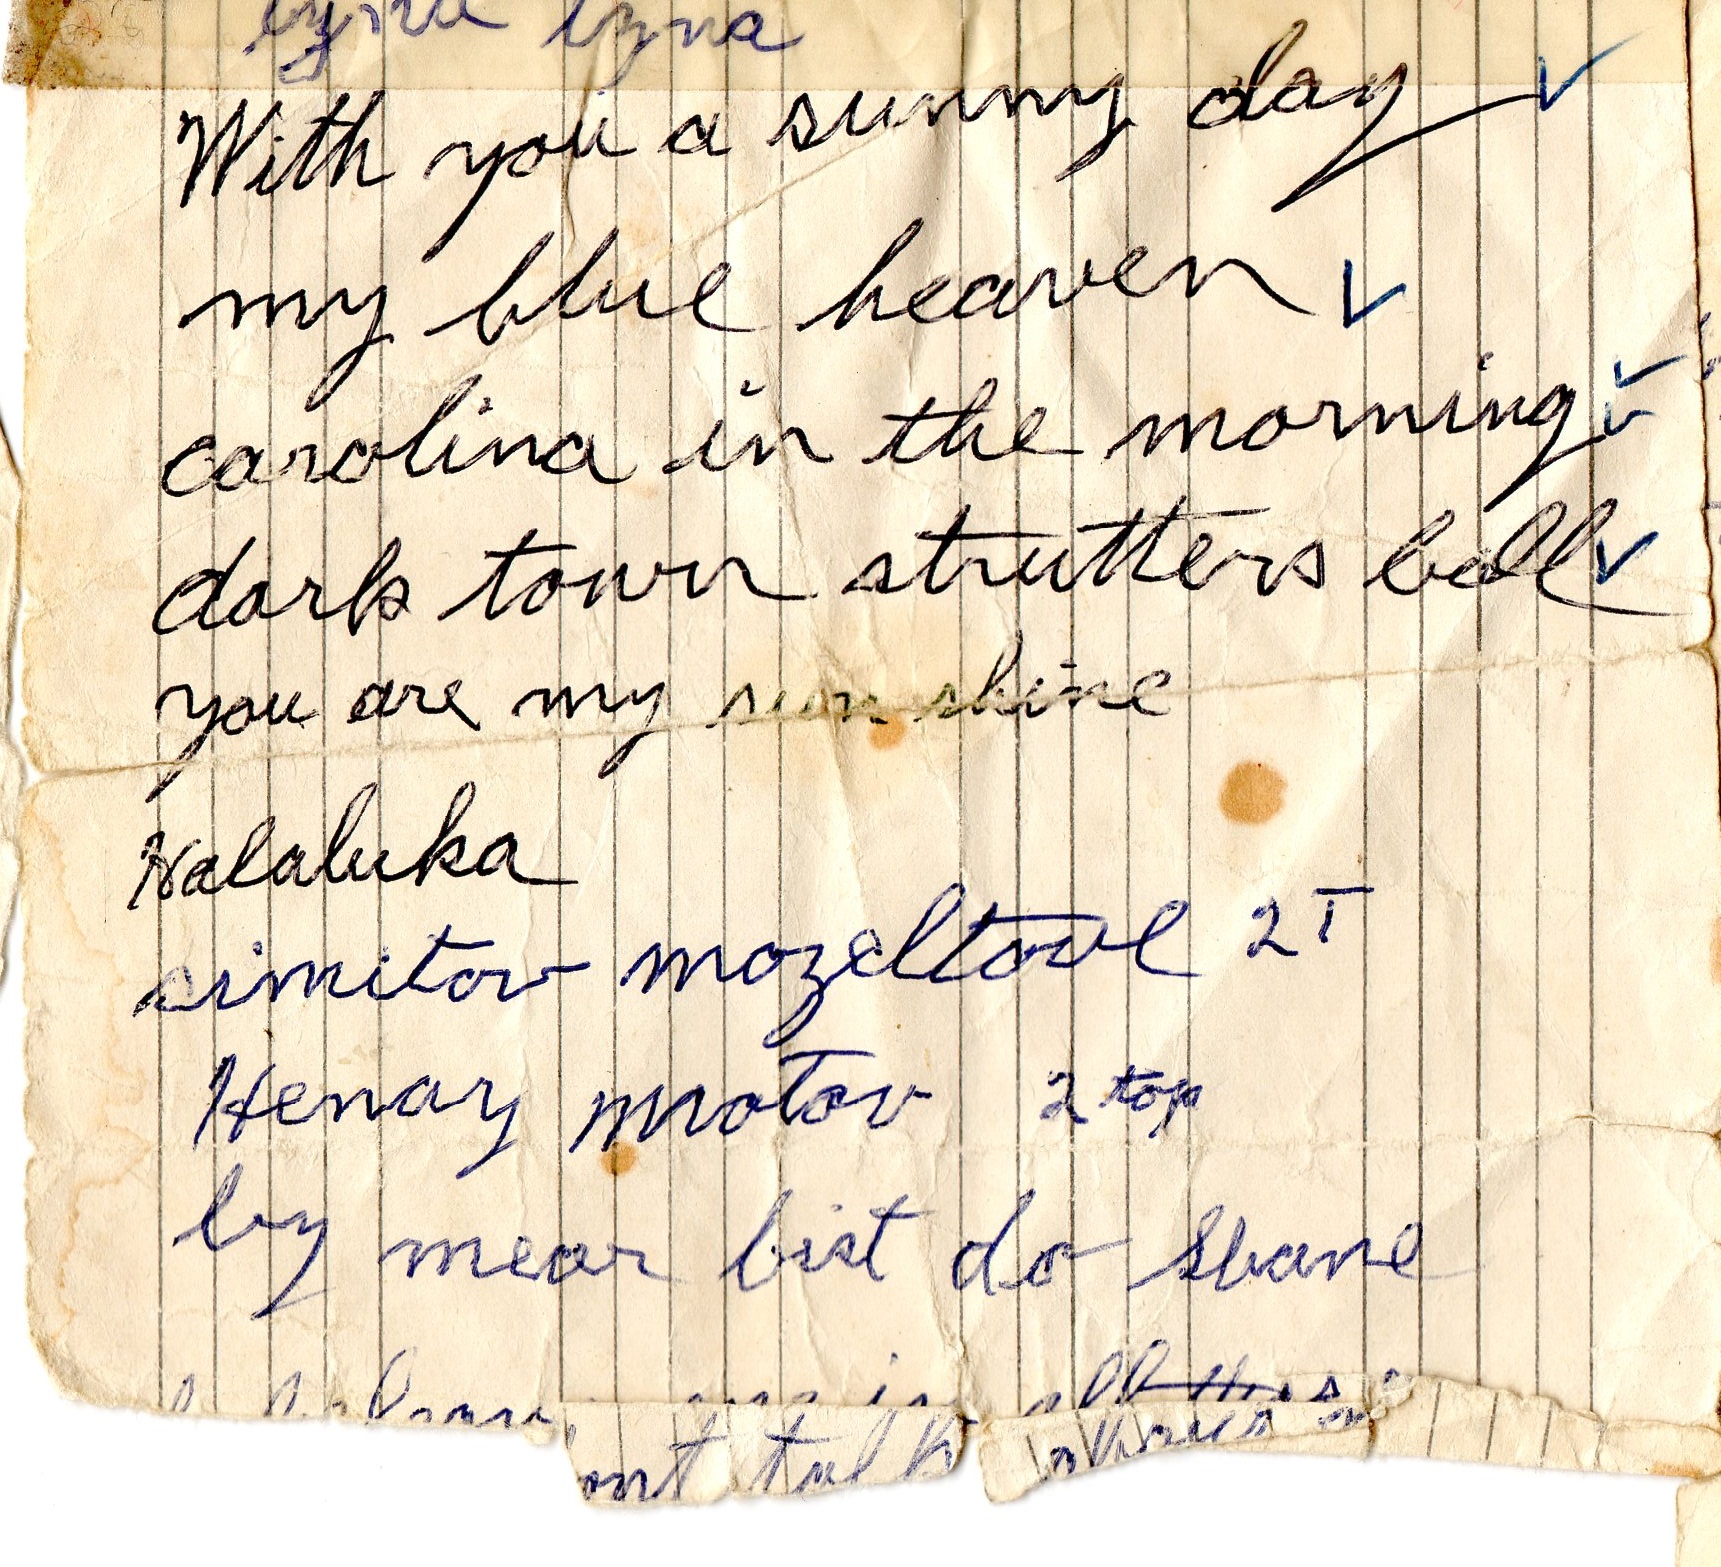 lyna
With you a sunny day ✓
my blue heaven ✓
carolina in the morning ✓ ✓
dark town strutters ball ✓
you are my sun shine
Halaluka
simitov mozeltove 2T
Henay motov 2 top
by mear bist do shane
ont talk